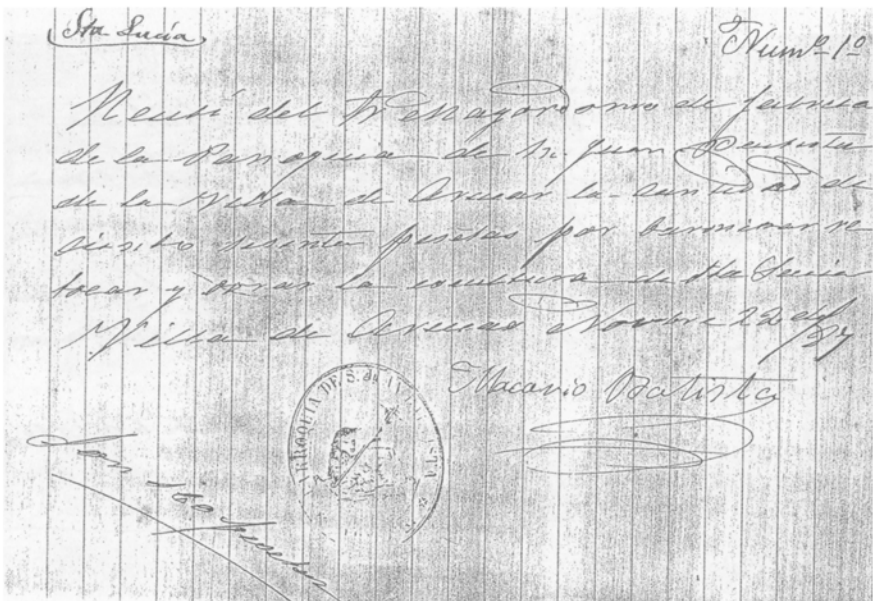 Sta Lucía
Numº 1º
Recibí del Sr Mayordomo de fabrica
de la Parroquia de Sn. Juan Bautista
de la Villa de Arucas la cantidad de
ciento sesenta pesetas por barnizar re
tocar y la escultura de Sta Lucia
Villa de Arucas Novbre 22 del
Macario Batista
PARROQUIA DE S. JUAN BAUTISTA
Son